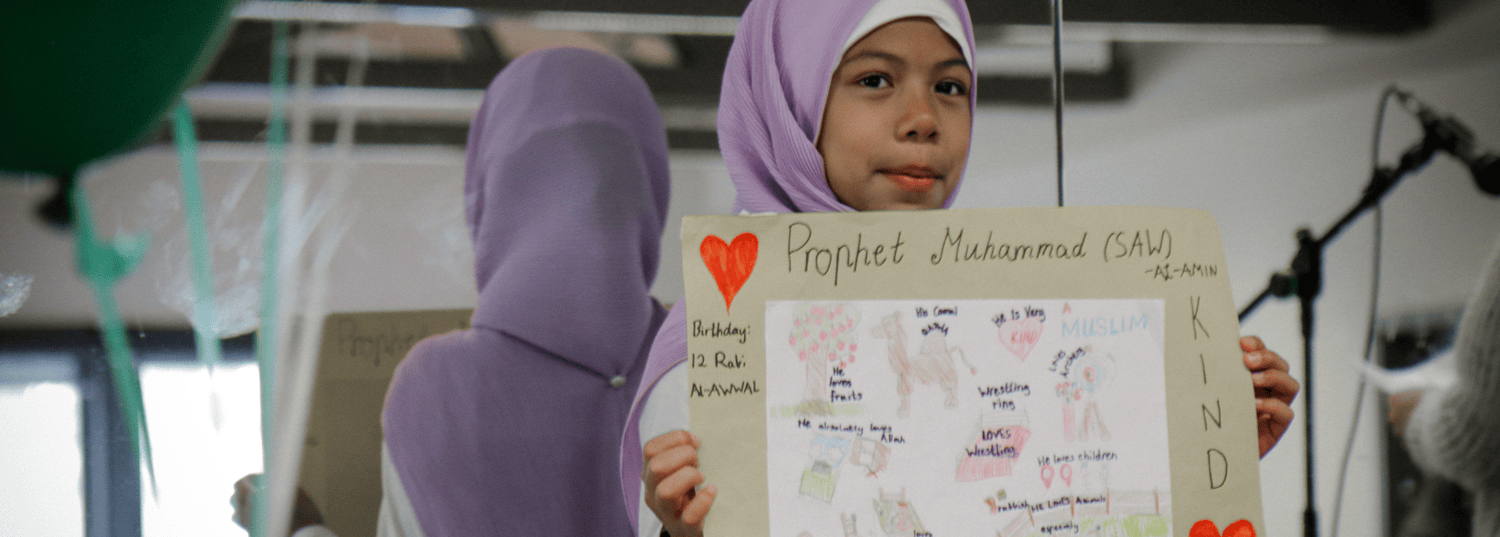 Prophet Muhammad (SAW)
-AL-AMIN
Birthday:
12 Rabi
Al-AWWAL
KIND
His Camel
He Is Very
KIND
A
MUSLIM
He
loves
fruits
Loves
Archery
Wrestling
ring
LOVES
Wrestling
He absolutely loves
Allah
He loves children
rabbits
HE LOVES Animals
especially
loves
Prophet